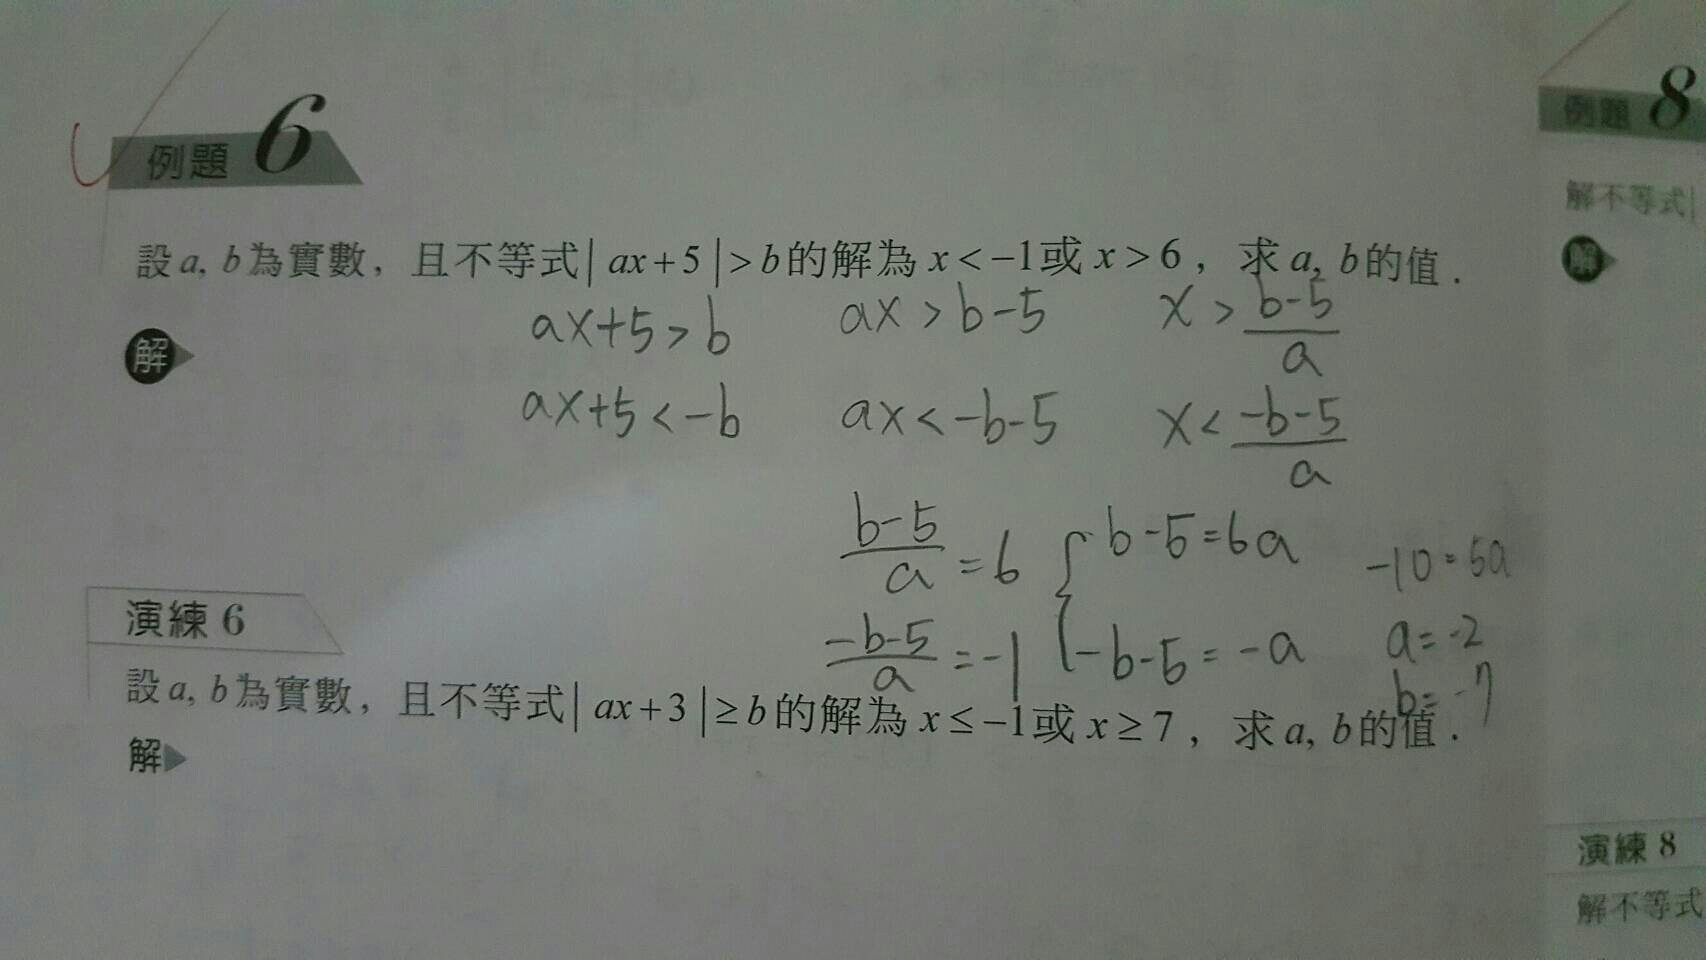 例題 6
設 a, b 為實數，且不等式 | ax + 5 | > b 的解為 x < −1 或 x > 6，求 a, b 的值．
解
ax+5 > b ax > b-5 x > \frac{b-5}{a}
ax+5 < -b ax < -b-5 x < \frac{-b-5}{a}
\frac{b-5}{a} = 6 { b-5 = 6a -10 = 5a
\frac{-b-5}{a} = -1 -b-5 = -a a = -2
b = -7
演練 6
設 a, b 為實數，且不等式 | ax + 3 | ≥ b 的解為 x ≤ −1 或 x ≥ 7，求 a, b 的值．
解
例題 8
解不等式 |
解
演練 8
解不等式